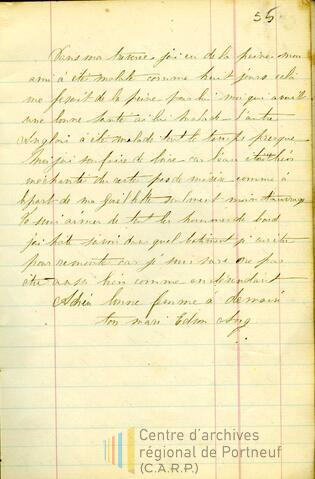 55
Dans ma tournee j'ai eu de la peine mon
ami à été malade comme huit jours celi
me fesait de la peine pas lui moi qui avait
une bonne santé as lui malade l'autre
Anglais à été malade tout le temps presque
moi j'ai souffaire de boire car l'eau était bien
méchante du reste pas de misère comme à
part de ma seulment mais
Je suis aimer de tout les hommes de bord
j'ai hate savoir dans quel batiment j'
pour remonté car je suis sure ne pas
être aussi bien comme en dessendant
Adieu bonne femme à demain
ton mari Edson
Centre d'archives
régional de Portneuf
(C.A.R.P.)